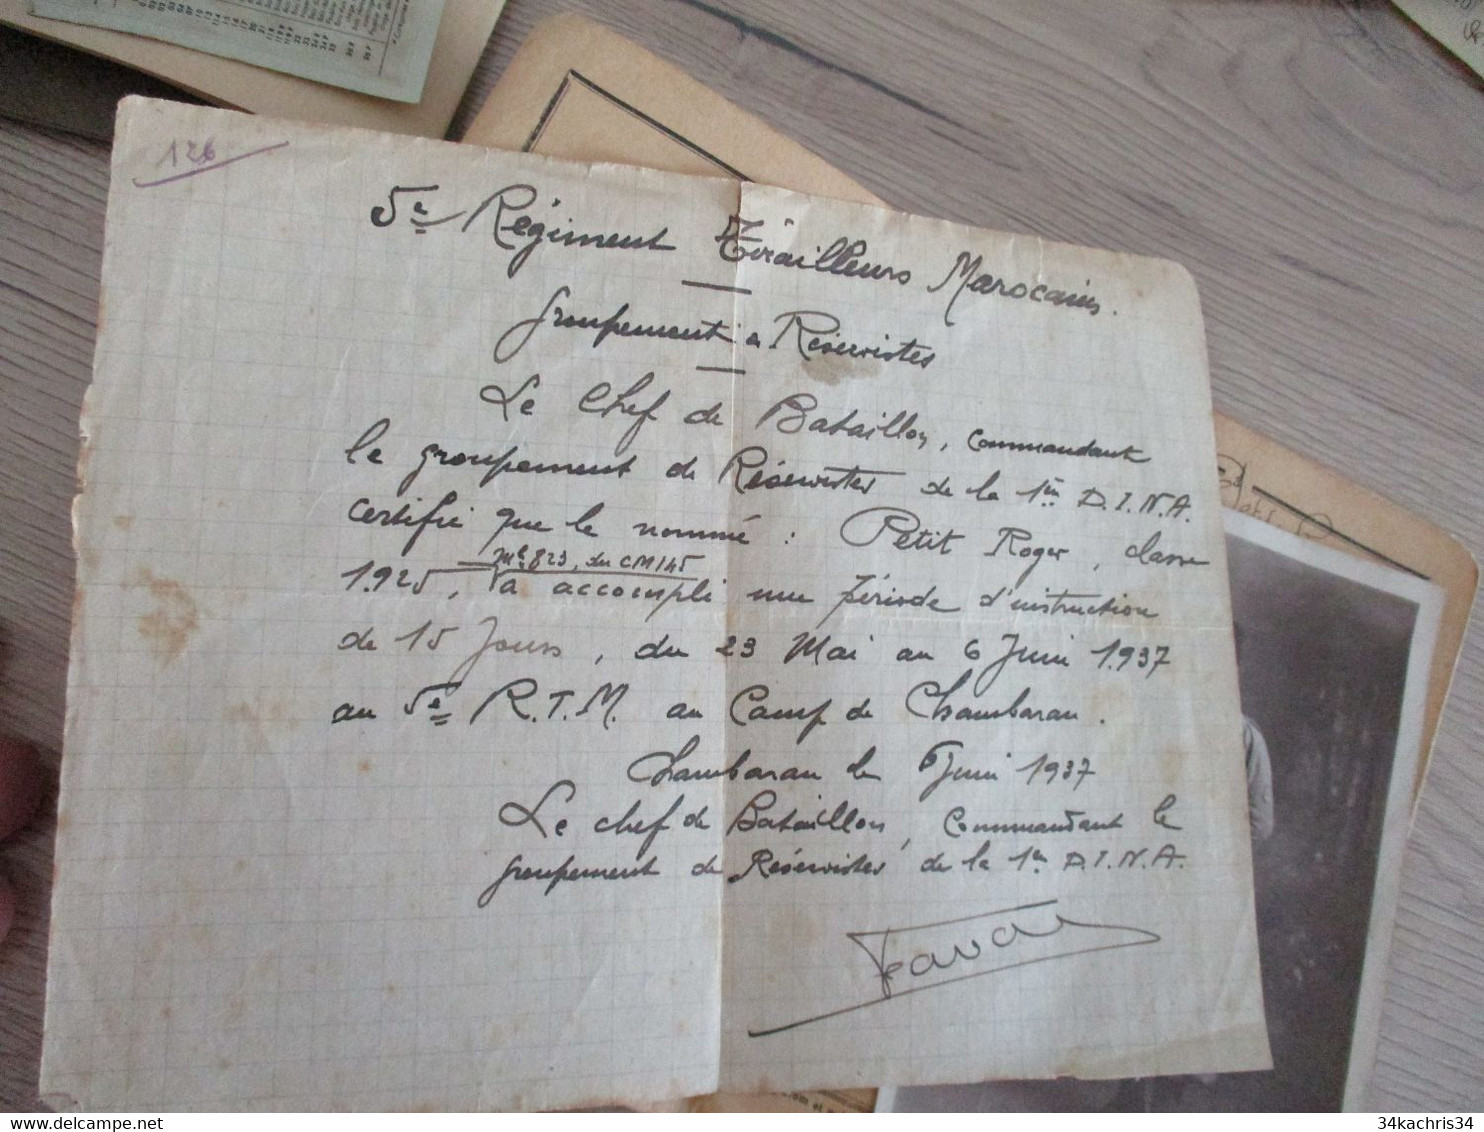 126
5e Régiment Tirailleurs Marocains.
Groupement de Réservistes
Le Chef de Bataillon, Commandant
le groupement de Réservistes de la 1ère D.I.N.A.
certifie que le nommé : Petit Roger, classe
Mle 823, du CM 145
1.925, a accompli une période d'instruction
de 15 Jours, du 23 Mai au 6 Juin 1.937
au 5e R.T.M. au Camp de Chambaran.
Chambaran le 6 Juin 1937
Le chef de Bataillon, Commandant le
groupement de Réservistes de la 1ère D.I.N.A.
34kachris34